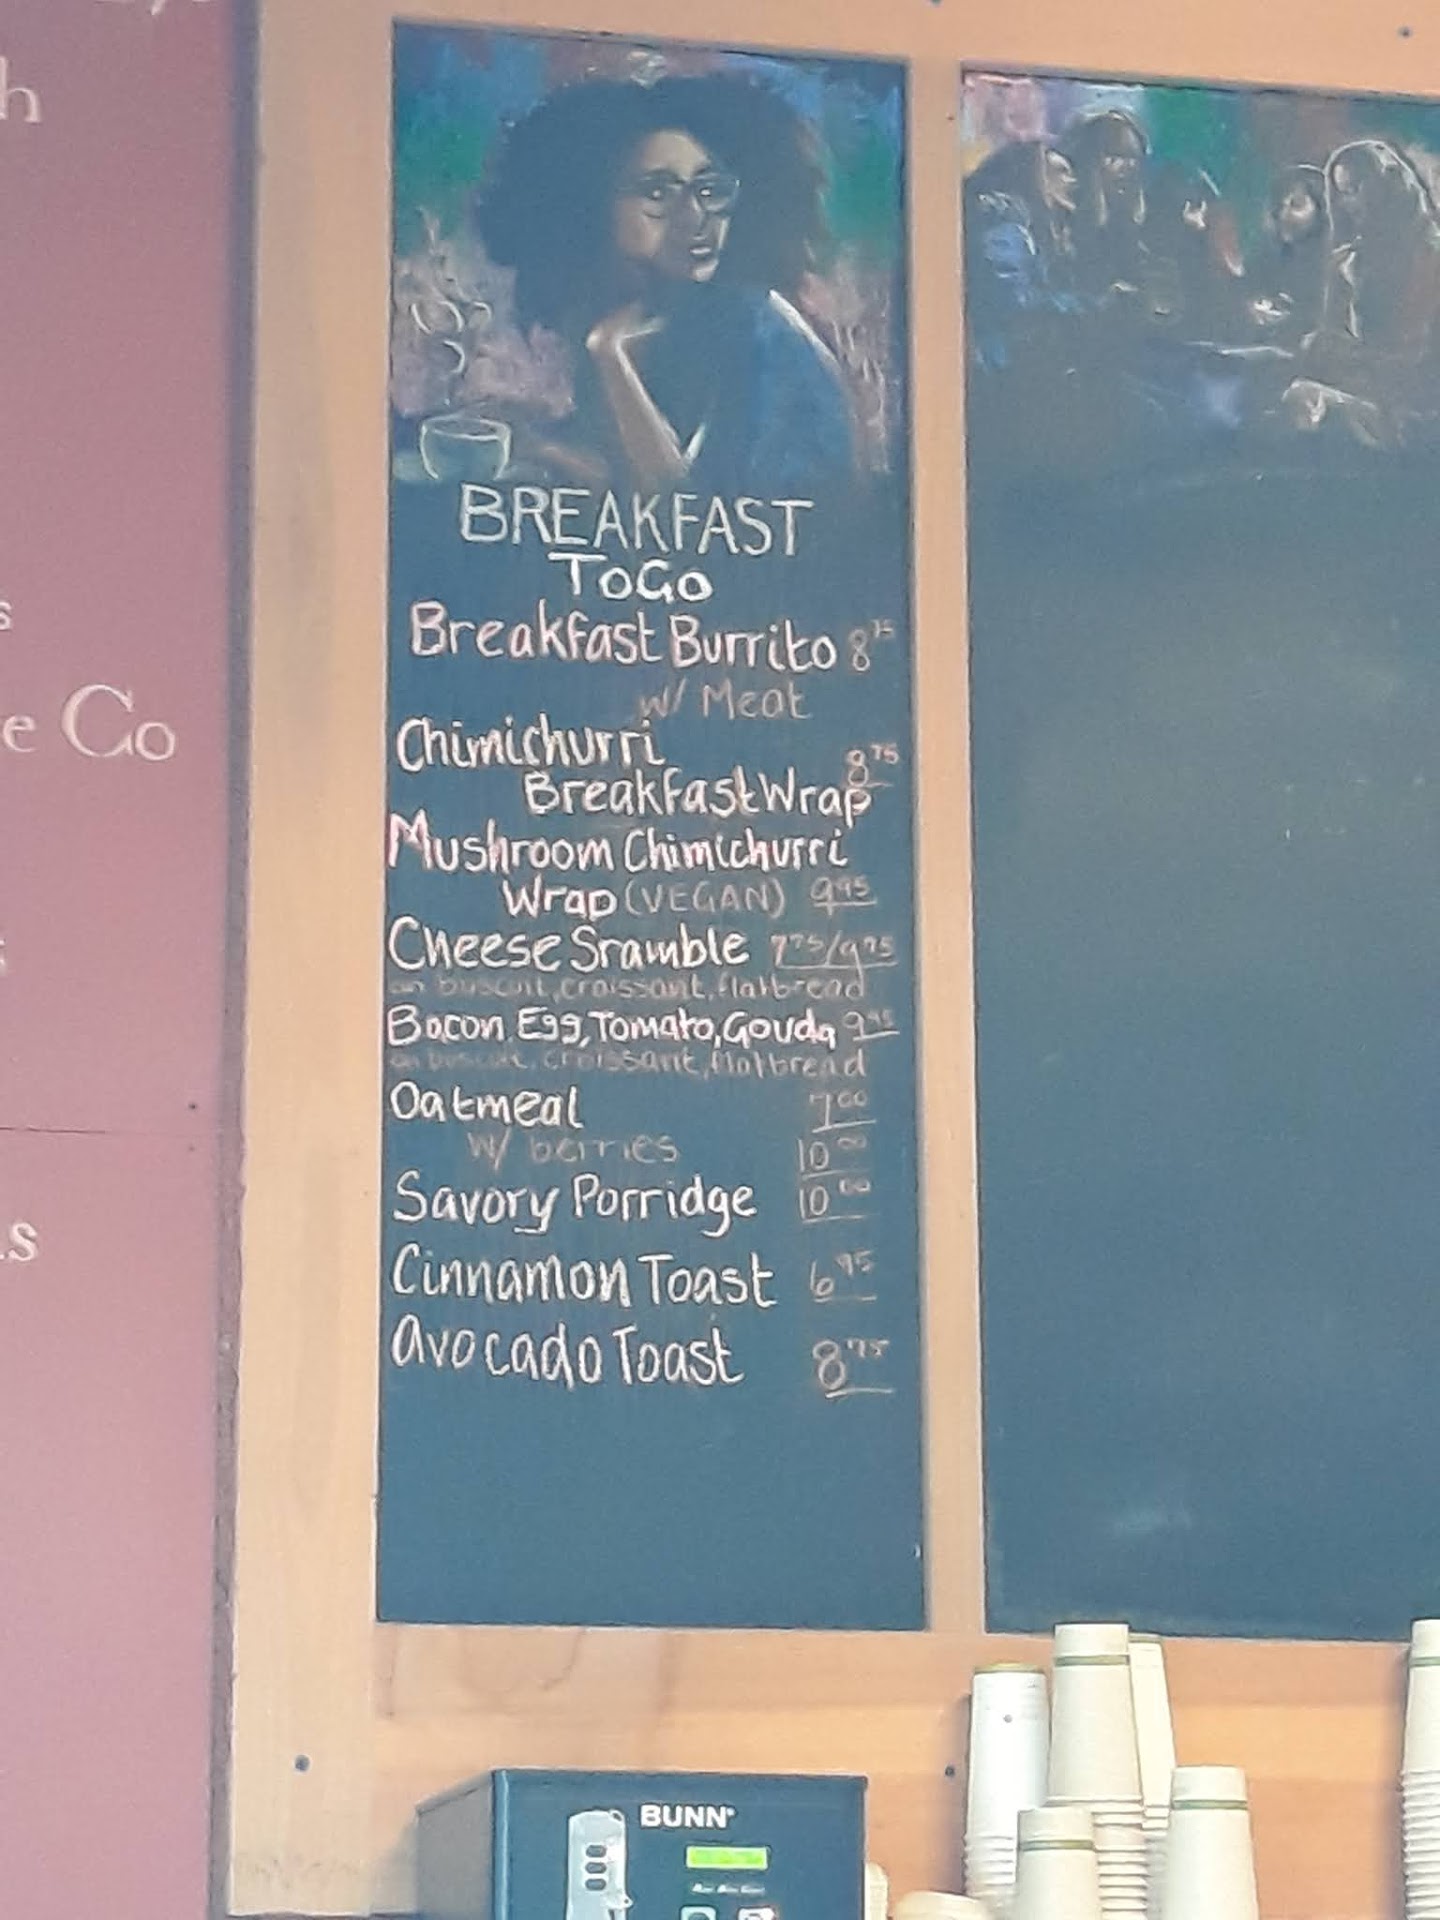 h
s
e Co
s
BREAKFAST
ToGo
Breakfast Burrito 8 75
w/ Meat
Chimichurri
Breakfast Wrap 8 75
Mushroom Chimichurri
Wrap (VEGAN) 9 95
Cheese Sramble 7 75/9 75
on buscuit, croissant, flatbread
Bacon, Egg, Tomato, Gouda 9 95
on buscuit, croissant, flatbread
Oatmeal 7 00
w/ berries 10 00
Savory Porridge 10 00
Cinnamon Toast 6 95
Avocado Toast 8 75
BUNN